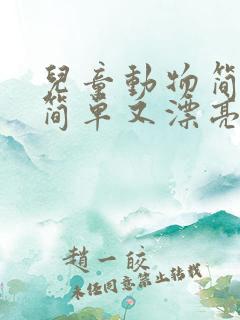 兒童動物简
简单又漂亮
趙一皎
未经同意禁止转载